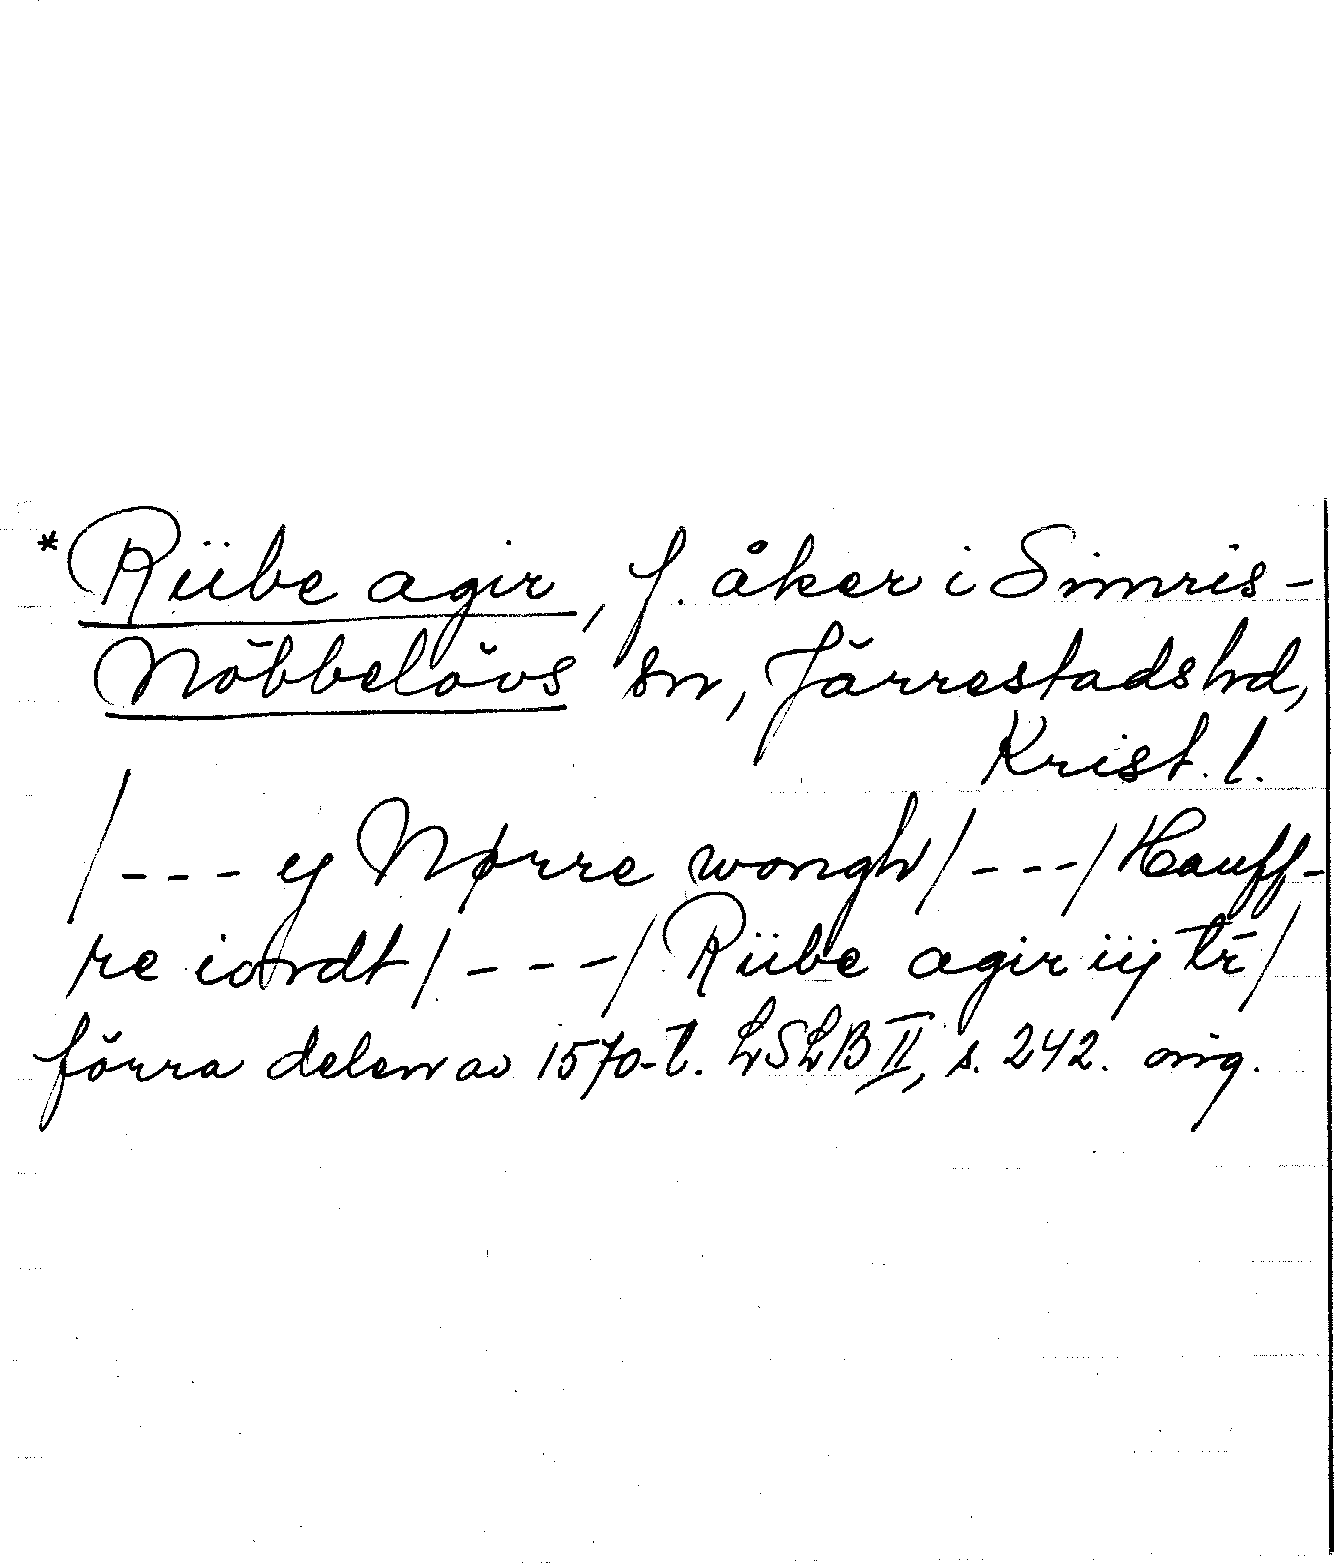 * Riibe agir, f. åker i Simris-
Nöbbelövs sn, Järrestads hd,
Krist. l.
/--- ej Nørre wongh/---/Hauff-
re iordt/---/Riibe agir iij tr̄/
förra delen av 1570-t. LSLB II, s. 242. orig.